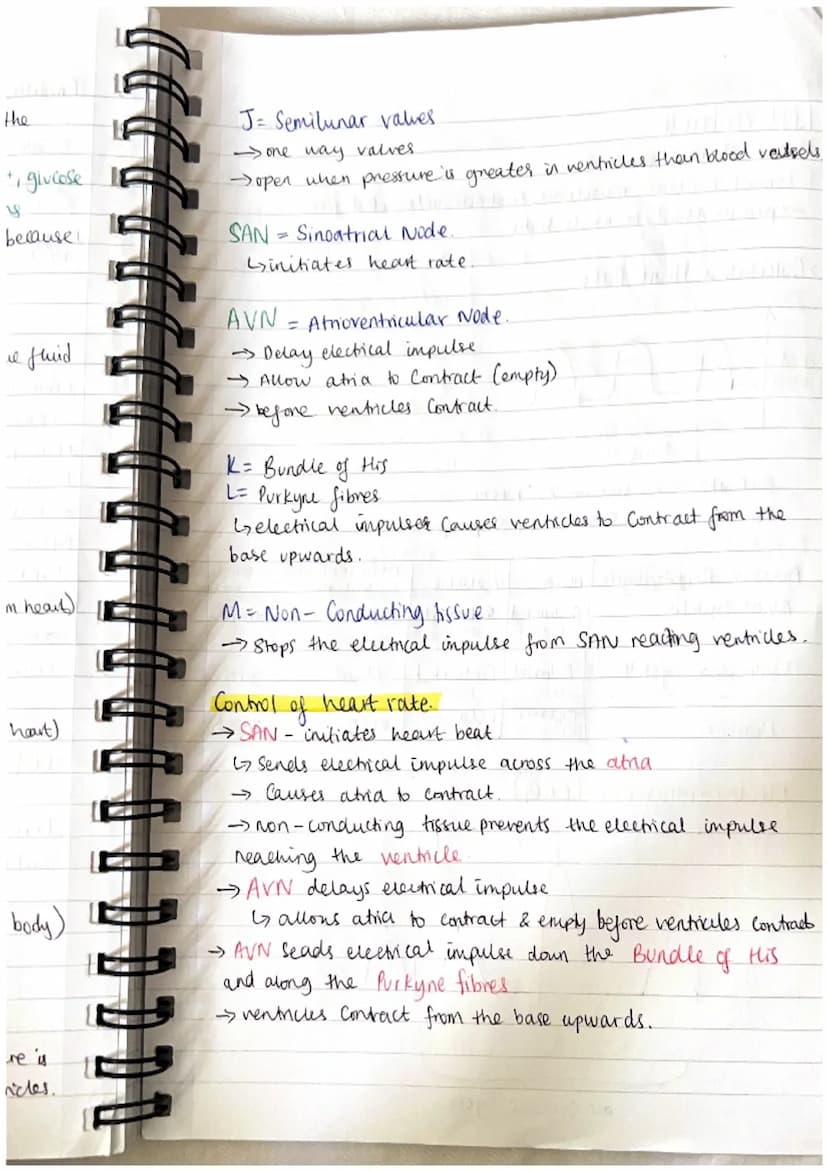 the
+, glucose
is
because
ue fluid
m heart)
heart)
body)
re is
ricles.
J= Semilunar valves
→ one way valves
→ open when pressure is greater in ventricles than blood vessels
SAN = Sinoatrial Node.
↳ initiates heart rate.
AVN = Atrioventricular Node.
→ Delay electrical impulse
→ Allow atria to Contract (empty)
→ before ventricles Contract.
K= Bundle of His
L= Purkyne fibres
↳ electrical impulses Causes ventricles to Contract from the
base upwards.
M= Non-Conducting tissue
→ Stops the electrical impulse from SAN reading ventricles.
Control of heart rate.
→ SAN - initiates heart beat.
↳ Sends electrical impulse across the atria
→ Causes atria to contract.
→ non-conducting tissue prevents the electrical impulse
reaching the ventricle.
→ AVN delays electrical impulse
↳ allows atria to contract & empty before ventricles contract
→ AVN sends electrical impulse down the Bundle of His
and along the Purkyne fibres
→ ventricles Contract from the base upwards.